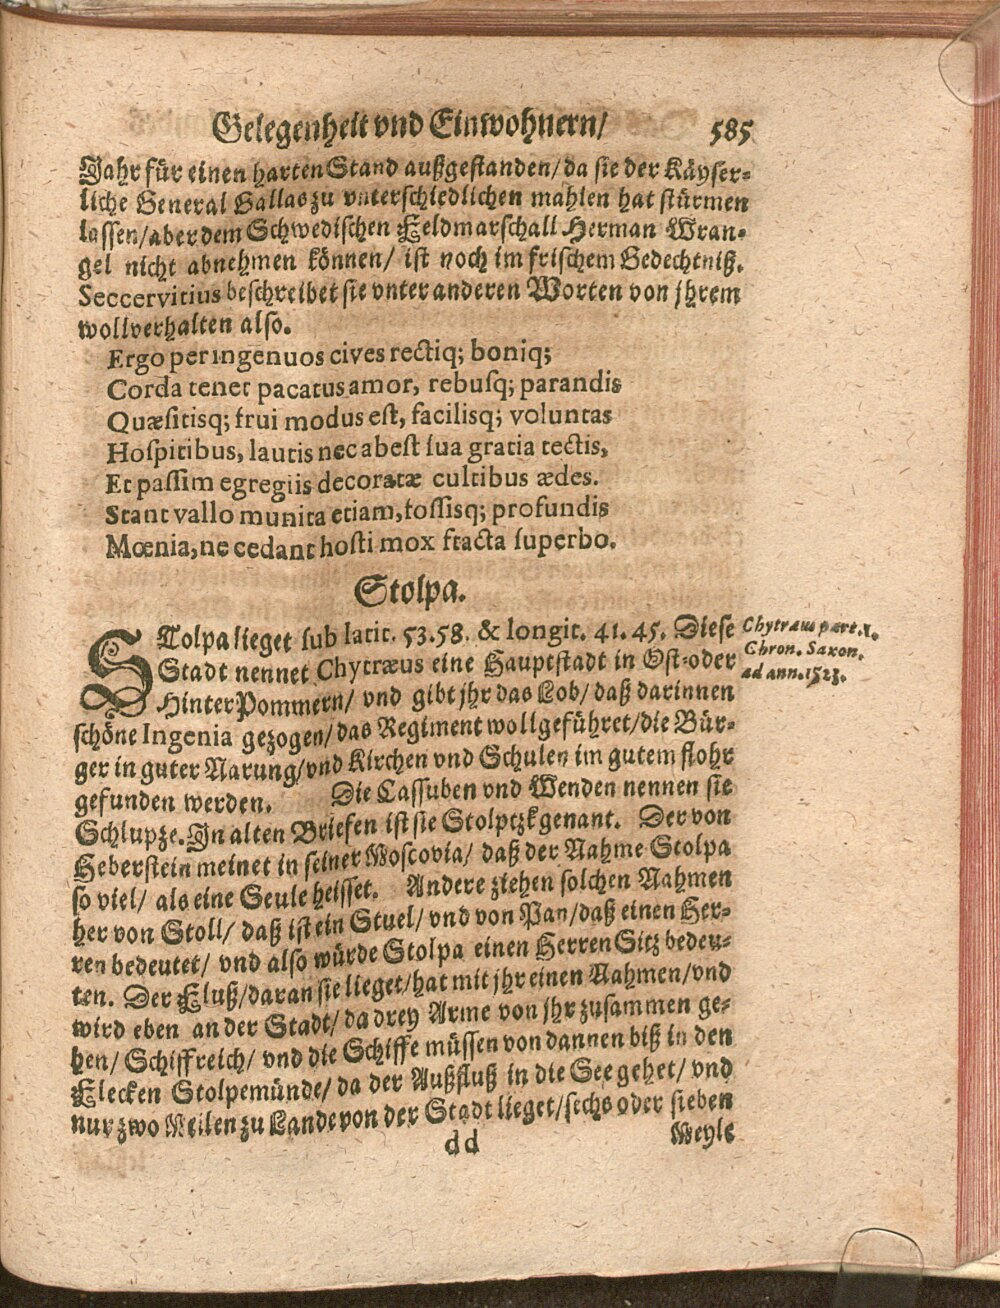 Gelegenheit vnd Einwohnern/ 585
Jahr für einen harten Stand außgestanden/ da sie der Käyser-
liche General Gallas zu vnterschiedlichen mahlen hat stürmen
lassen/ aber dem Schwedischen Feldmarschall Herman Wran-
gel nicht abnehmen können/ ist noch im frischem Gedechtniß.
Seccervitius beschreibet sie vnter anderen Worten von jhrem
wollverhalten also.
Ergo per ingenuos cives rectiq; boniq;
Corda tenet pacatus amor, rebusq; parandis
Quæsitisq; frui modus est, facilisq; voluntas
Hospitibus, lautis nec abest sua gratia tectis,
Et passim egregiis decoratæ cultibus ædes.
Stant vallo munita etiam, fossisq; profundis
Mœnia, ne cedant hosti mox fracta superbo.
Stolpa.
STolpa lieget sub latit. 53. 58. & longit. 41. 45. Diese
Stadt nennet Chytræus eine Hauptstadt in Ost- oder
HinterPommern/ vnd gibt jhr das Lob/ daß darinnen
schöne Ingenia gezogen/ das Regiment wollgeführet/ die Bür-
ger in guter Narung/ vnd Kirchen vnd Schulen im gutem flohr
gefunden werden. Die Cassuben vnd Wenden nennen sie
Schlupze. In alten Briefen ist sie Stolptzk genant. Der von
Heberstein meinet in seiner Moscovia/ daß der Nahme Stolpa
so viel/ als eine Seule heisset. Andere ziehen solchen Nahmen
her von Stoll/ daß ist ein Stuel/ vnd von Pan/ daß einen Her-
ren bedeutet/ vnd also würde Stolpa einen Herren Sitz bedeu-
ten. Der Fluß/ daran sie lieget/ hat mit jhr einen Nahmen/ vnd
wird eben an der Stadt/ da drey Arme von jhr zusammen ge-
hen/ Schiffreich/ vnd die Schiffe müssen von dannen biß in den
Flecken Stolpemünde/ da der Außfluß in die See gehet/ vnd
nur zwo Meilen zu Lande von der Stadt lieget/ sechs oder sieben
dd Meyle
Chytræus part. 1.
Chron. Saxon.
ad ann. 1523.